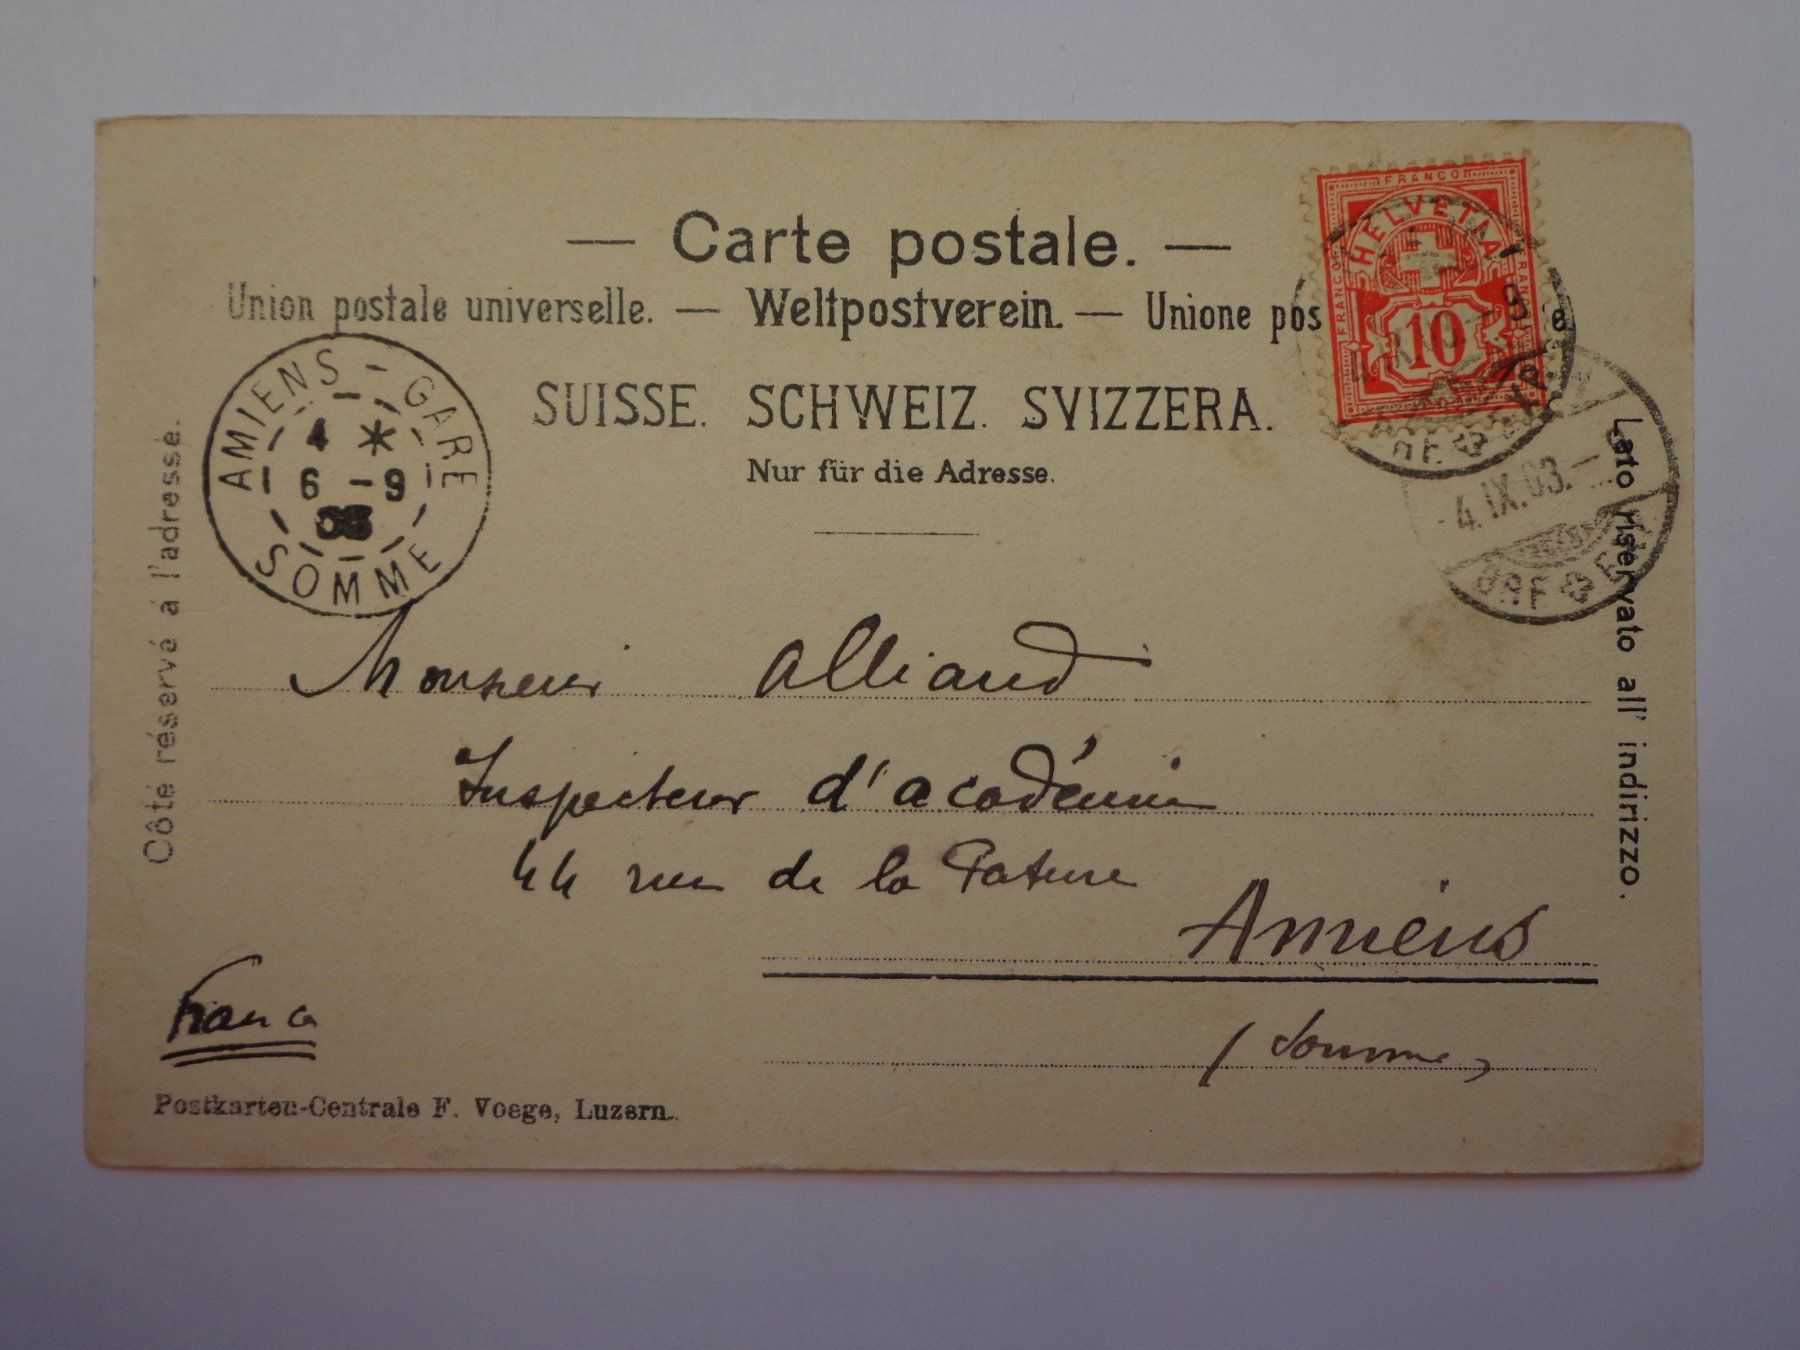 — Carte postale. —
Union postale universelle. — Weltpostverein. — Unione pos e
SUISSE. SCHWEIZ. SVIZZERA.
Nur für die Adresse.
FRANCO
FRANCO
FRANCO
HELVETIA
10
-4.IX.03.-
AMIENS-GARE
4 *
6 -9
03
SOMME
Côté réservé á l'adresse.
Lato riservato all' indirizzo.
Monsieur Alliaud
Inspecteur d'académie
44 rue de la Pature
Amiens
(Somme)
France
Postkarten-Centrale F. Voege, Luzern.